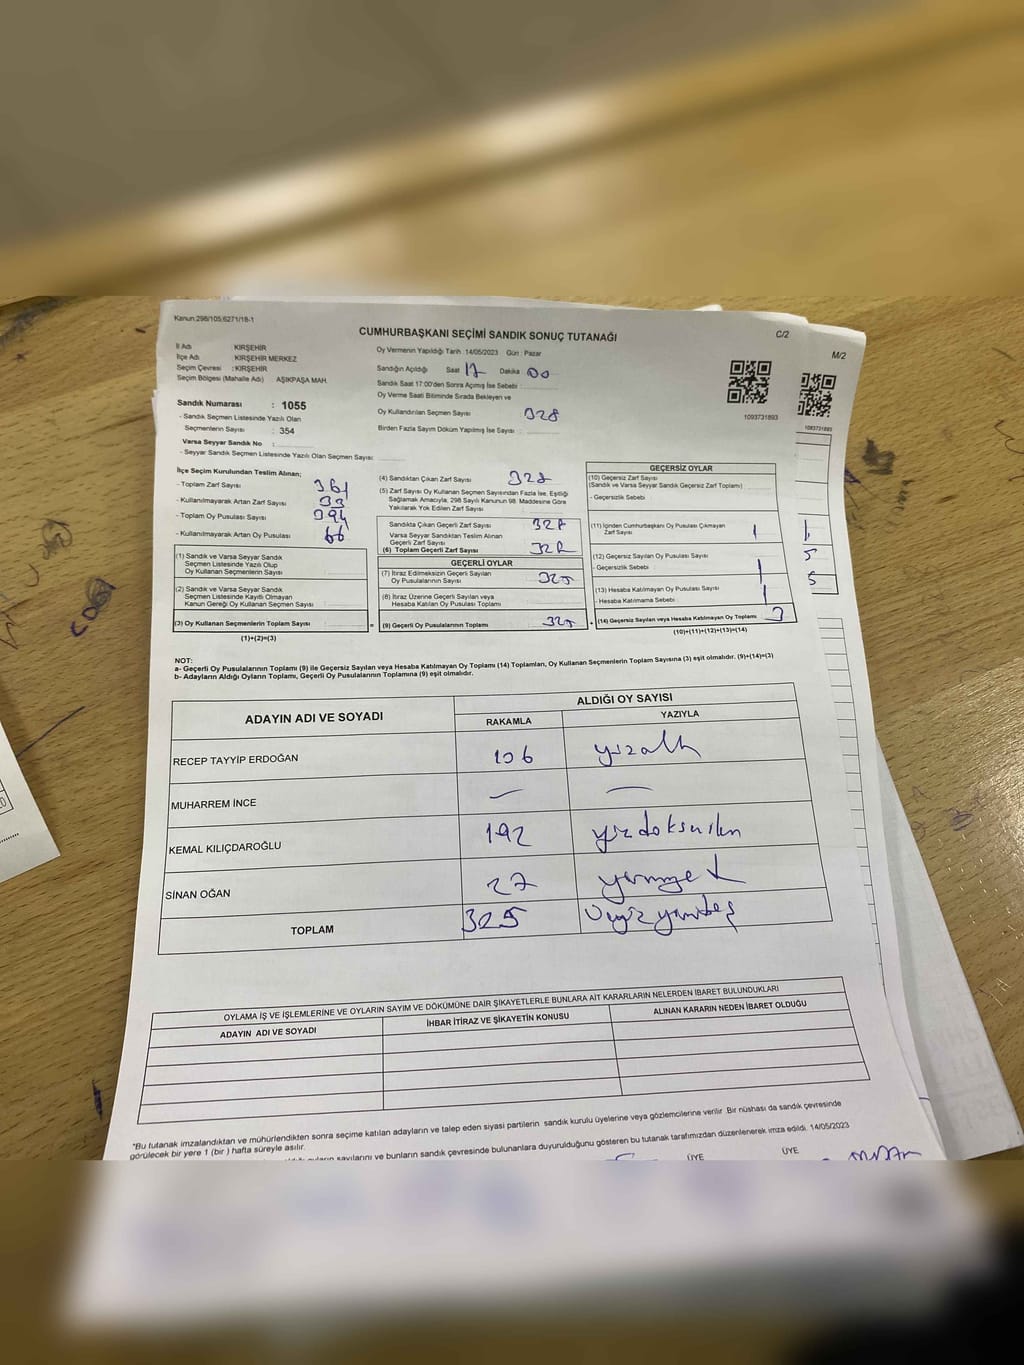 Kanun:298/105;6271/18-1
CUMHURBAŞKANI SEÇİMİ SANDIK SONUÇ TUTANAĞI
C/2
M/2
İl Adı : KIRŞEHİR
İlçe Adı : KIRŞEHİR MERKEZ
Seçim Çevresi : KIRŞEHİR
Seçim Bölgesi (Mahalle Adı) : AŞIKPAŞA MAH.
Oy Vermenin Yapıldığı Tarih :14/05/2023 Gün : Pazar
Sandığın Açıldığı Saat 17 Dakika 00
Sandık Saat 17:00'den Sonra Açımış İse Sebebi :
Oy Verme Saati Bitiminde Sırada Bekleyen ve
Oy Kullandırılan Seçmen Sayısı 328
Birden Fazla Sayım Döküm Yapılmış İse Sayısı :
1093731893
1093731893
Sandık Numarası : 1055
- Sandık Seçmen Listesinde Yazılı Olan
Seçmenlerin Sayısı : 354
Varsa Seyyar Sandık No :
- Seyyar Sandık Seçmen Listesinde Yazılı Olan Seçmen Sayısı:
İlçe Seçim Kurulundan Teslim Alınan;
- Toplam Zarf Sayısı : 361
- Kullanılmayarak Artan Zarf Sayısı : 33
- Toplam Oy Pusulası Sayısı : 394
- Kullanılmayarak Artan Oy Pusulası : 66
(1) Sandık ve Varsa Seyyar Sandık
Seçmen Listesinde Yazılı Olup
Oy Kullanan Seçmenlerin Sayısı :
(2) Sandık ve Varsa Seyyar Sandık
Seçmen Listesinde Kayıtlı Olmayan
Kanun Gereği Oy Kullanan Seçmen Sayısı :
(3) Oy Kullanan Seçmenlerin Toplam Sayısı :
(1)+(2)=(3)
(4) Sandıktan Çıkan Zarf Sayısı : 328
(5) Zarf Sayısı Oy Kullanan Seçmen Sayısından Fazla İse, Eşitliği
Sağlamak Amacıyla, 298 Sayılı Kanunun 98. Maddesine Göre
Yakılarak Yok Edilen Zarf Sayısı :
Sandıkta Çıkan Geçerli Zarf Sayısı 328
Varsa Seyyar Sandıktan Teslim Alınan
Geçerli Zarf Sayısı
(6) Toplam Geçerli Zarf Sayısı 328
GEÇERLİ OYLAR
(7) İtiraz Edilmeksizin Geçerli Sayılan
Oy Pusulalarının Sayısı : 325
(8) İtiraz Üzerine Geçerli Sayılan veya
Hesaba Katılan Oy Pusulası Toplamı
= (9) Geçerli Oy Pusulalarının Toplamı 325
GEÇERSİZ OYLAR
(10) Geçersiz Zarf Sayısı
(Sandık ve Varsa Seyyar Sandık Geçersiz Zarf Toplamı)
- Geçersizlik Sebebi
(11) İçinden Cumhurbaşkanı Oy Pusulası Çıkmayan
Zarf Sayısı 1
(12) Geçersiz Sayılan Oy Pusulası Sayısı
- Geçersizlik Sebebi : 1
(13) Hesaba Katılmayan Oy Pusulası Sayısı
- Hesaba Katılmama Sebebi : 1
+ (14) Geçersiz Sayılan veya Hesaba Katılmayan Oy Toplamı 3
(10)+(11)+(12)+(13)=(14)
1
5
5
NOT:
a- Geçerli Oy Pusulalarının Toplamı (9) ile Geçersiz Sayılan veya Hesaba Katılmayan Oy Toplamı (14) Toplamları, Oy Kullanan Seçmenlerin Toplam Sayısına (3) eşit olmalıdır. (9)+(14)=(3)
b- Adayların Aldığı Oyların Toplamı, Geçerli Oy Pusulalarının Toplamına (9) eşit olmalıdır.
ADAYIN ADI VE SOYADI
ALDIĞI OY SAYISI
RAKAMLA YAZIYLA
RECEP TAYYİP ERDOĞAN 106 yüzaltı
MUHARREM İNCE — —
KEMAL KILIÇDAROĞLU 192 yüzdoksaniki
SİNAN OĞAN 27 yirmiyedi
TOPLAM 325 üçyüzyirmibeş
OYLAMA İŞ VE İŞLEMLERİNE VE OYLARIN SAYIM VE DÖKÜMÜNE DAİR ŞİKAYETLERLE BUNLARA AİT KARARLARIN NELERDEN İBARET BULUNDUKLARI
ADAYIN ADI VE SOYADI İHBAR İTİRAZ VE ŞİKAYETİN KONUSU ALINAN KARARIN NEDEN İBARET OLDUĞU
"Bu tutanak imzalandıktan ve mühürlendikten sonra seçime katılan adayların ve talep eden siyasi partilerin sandık kurulu üyelerine veya gözlemcilerine verilir. Bir nüshası da sandık çevresinde
görülecek bir yere 1 (bir ) hafta süreyle asılır.
sayılarını ve bunların sandık çevresinde bulunanlara duyurulduğunu gösteren bu tutanak tarafımızdan düzenlenerek imza edildi. 14/05/2023
ÜYE ÜYE